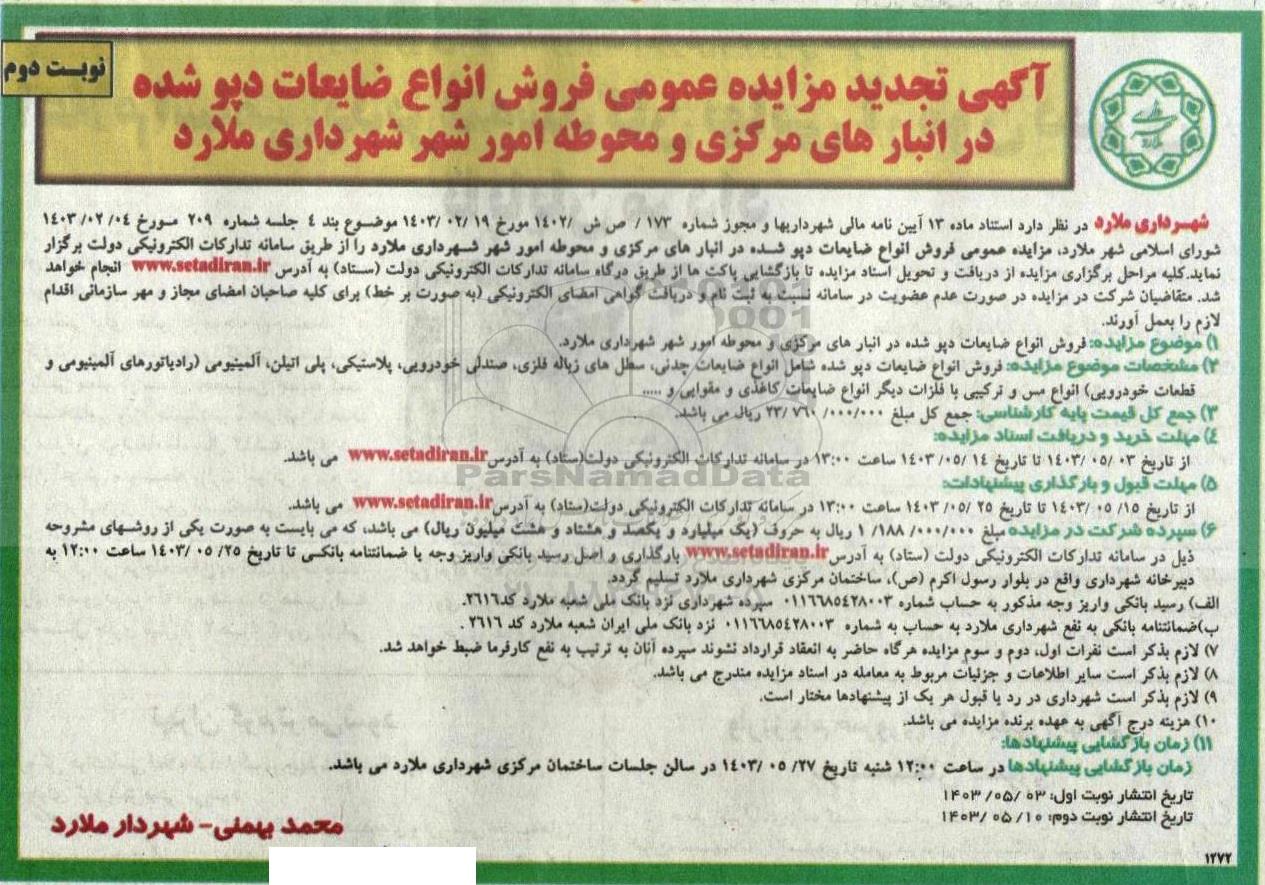 نوبت دوم
آگهی تجدید مزایده عمومی فروش انواع ضایعات دپو شده
در انبار های مرکزی و محوطه امور شهر شهرداری ملارد
شهرداری ملارد در نظر دارد استناد ماده ۱۳ آیین نامه مالی شهرداریها و مجوز شماره ۱۷۳ / ص ش /۱۴۰۲ مورخ ۱۹ /۰۲ /۱۴۰۳ موضوع بند ۴ جلسه شماره ۲۰۹ مورخ ۰۴ /۰۲ /۱۴۰۳
شورای اسلامی شهر ملارد، مزایده عمومی فروش انواع ضایعات دپو شده در انبار های مرکزی و محوطه امور شهر شهرداری ملارد را از طریق سامانه تدارکات الکترونیکی دولت برگزار
نماید.کلیه مراحل برگزاری مزایده از دریافت و تحویل اسناد مزایده تا بازگشایی پاکت ها از طریق درگاه سامانه تدارکات الکترونیکی دولت (ستاد) به آدرس www.setadiran.ir انجام خواهد
شد. متقاضیان شرکت در مزایده در صورت عدم عضویت در سامانه نسبت به ثبت نام و دریافت گواهی امضای الکترونیکی (به صورت بر خط) برای کلیه صاحبان امضای مجاز و مهر سازمانی اقدام
لازم را بعمل آورند.
۱) موضوع مزایده: فروش انواع ضایعات دپو شده در انبار های مرکزی و محوطه امور شهر شهرداری ملارد.
۲) مشخصات موضوع مزایده: فروش انواع ضایعات دپو شده شامل انواع ضایعات چدنی، سطل های زباله فلزی، صندلی خودرویی، پلاستیکی، پلی اتیلن، آلمینیومی (رادیاتورهای آلمینیومی و
قطعات خودرویی) انواع مس و ترکیبی با فلزات دیگر انواع ضایعات کاغذی و مقوایی و .....
۳) جمع کل قیمت پایه کارشناسی: جمع کل مبلغ ۲۳/ ۷۶۰ /۰۰۰/۰۰۰ ریال می باشد.
۴) مهلت خرید و دریافت اسناد مزایده:
از تاریخ ۰۳ /۰۵ /۱۴۰۳ تا تاریخ ۱۴ /۰۵ /۱۴۰۳ ساعت ۱۳:۰۰ در سامانه تدارکات الکترونیکی دولت(ستاد) به آدرس www.setadiran.ir می باشد.
۵) مهلت قبول و بارگذاری پیشنهادات:
از تاریخ ۱۵/ ۰۵ /۱۴۰۳ تا تاریخ ۲۵ /۰۵ /۱۴۰۳ ساعت ۱۳:۰۰ در سامانه تدارکات الکترونیکی دولت(ستاد) به آدرس www.setadiran.ir می باشد.
۶) سپرده شرکت در مزایده مبلغ ۰۰۰/۰۰۰/ ۱۸۸/ ۱ ریال به حروف (یک میلیارد و یکصد و هشتاد و هشت میلیون ریال) می باشد، که می بایست به صورت یکی از روشهای مشروحه
ذیل در سامانه تدارکات الکترونیکی دولت (ستاد) به آدرس www.setadiran.ir بارگذاری و اصل رسید بانکی واریز وجه یا ضمانتنامه بانکی تا تاریخ ۲۵/ ۰۵ /۱۴۰۳ ساعت ۱۲:۰۰ به
دبیرخانه شهرداری واقع در بلوار رسول اکرم (ص)، ساختمان مرکزی شهرداری ملارد تسلیم گردد.
الف) رسید بانکی واریز وجه مذکور به حساب شماره ۰۱۱۶۶۸۵۴۲۸۰۰۳ سپرده شهرداری نزد بانک ملی شعبه ملارد کد۲۶۱۶.
ب)ضمانتنامه بانکی به نفع شهرداری ملارد به حساب به شماره ۰۱۱۶۶۸۵۴۲۸۰۰۳ نزد بانک ملی ایران شعبه ملارد کد ۲۶۱۶ .
۷) لازم بذکر است نفرات اول، دوم و سوم مزایده هرگاه حاضر به انعقاد قرارداد نشوند سپرده آنان به ترتیب به نفع کارفرما ضبط خواهد شد.
۸) لازم بذکر است سایر اطلاعات و جزئیات مربوط به معامله در اسناد مزایده مندرج می باشد.
۹) لازم بذکر است شهرداری در رد یا قبول هر یک از پیشنهادها مختار است.
۱۰) هزینه درج آگهی به عهده برنده مزایده می باشد.
۱۱) زمان بازگشایی پیشنهادها:
زمان بازگشایی پیشنهادها در ساعت ۱۲:۰۰ شنبه تاریخ ۲۷/ ۰۵ /۱۴۰۳ در سالن جلسات ساختمان مرکزی شهرداری ملارد می باشد.
تاریخ انتشار نوبت اول: ۰۳ /۰۵ /۱۴۰۳
تاریخ انتشار نوبت دوم: ۱۰ /۰۵ /۱۴۰۳
محمد بهمنی- شهردار ملارد
۱۲۷۲
ParsNamadData